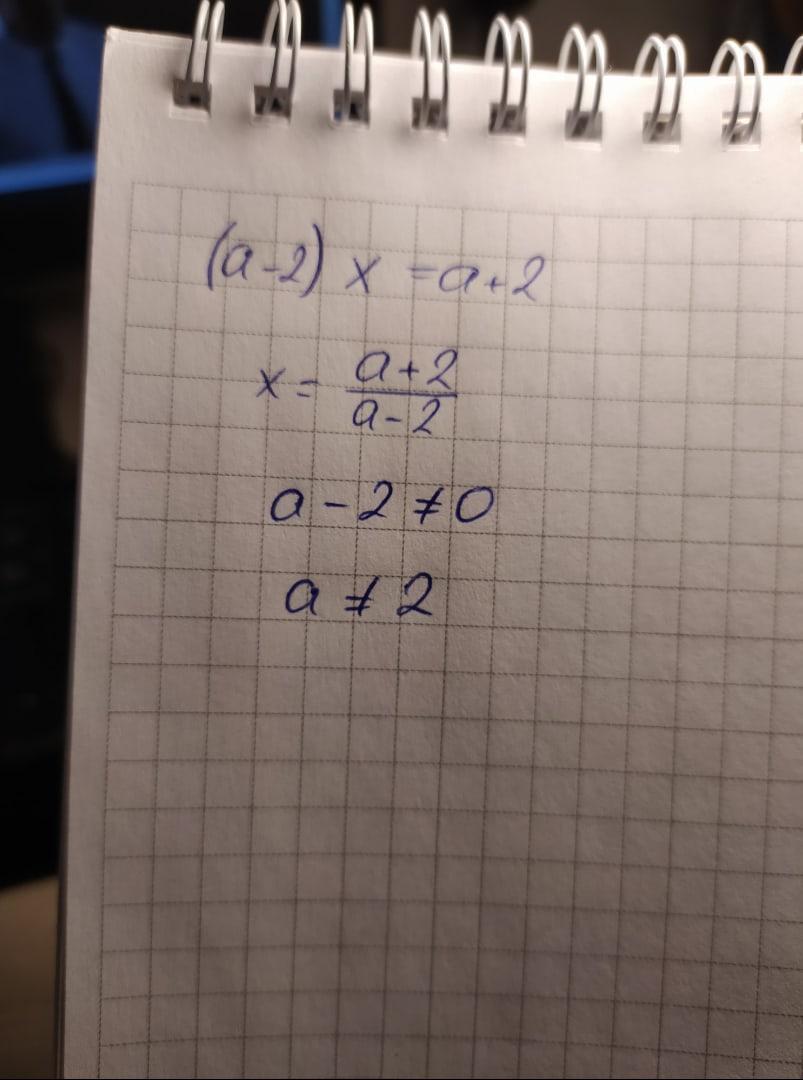 (a-2) x = a+2
x = \frac{a+2}{a-2}
a - 2 ≠ 0
a ≠ 2